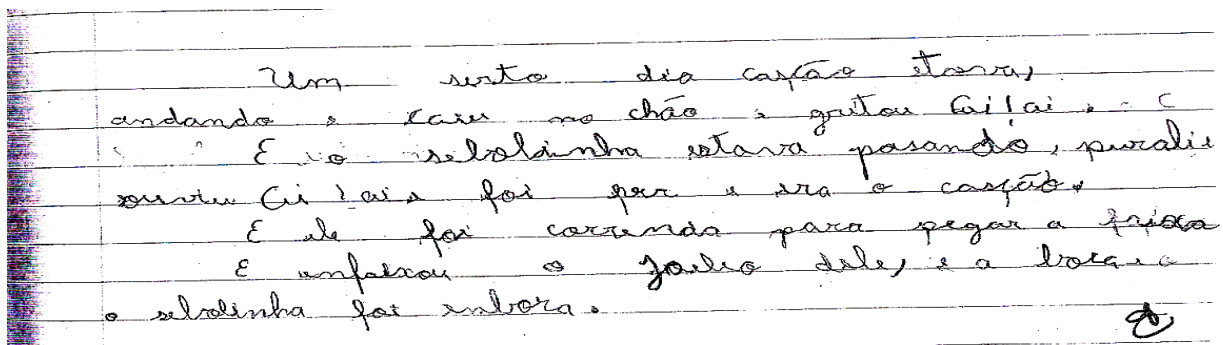 Um serto dia casção etava,
andando e caiu no chão e gritou Cai!ai.
E o sebolainha estava pasando, puralie
ouviu Ci!ai e foi per e era o casção.
E ele foi correndo para pegar a faixa
E emfaixou o Joelio dele, e a boca e o
o sebolinha foi embora.